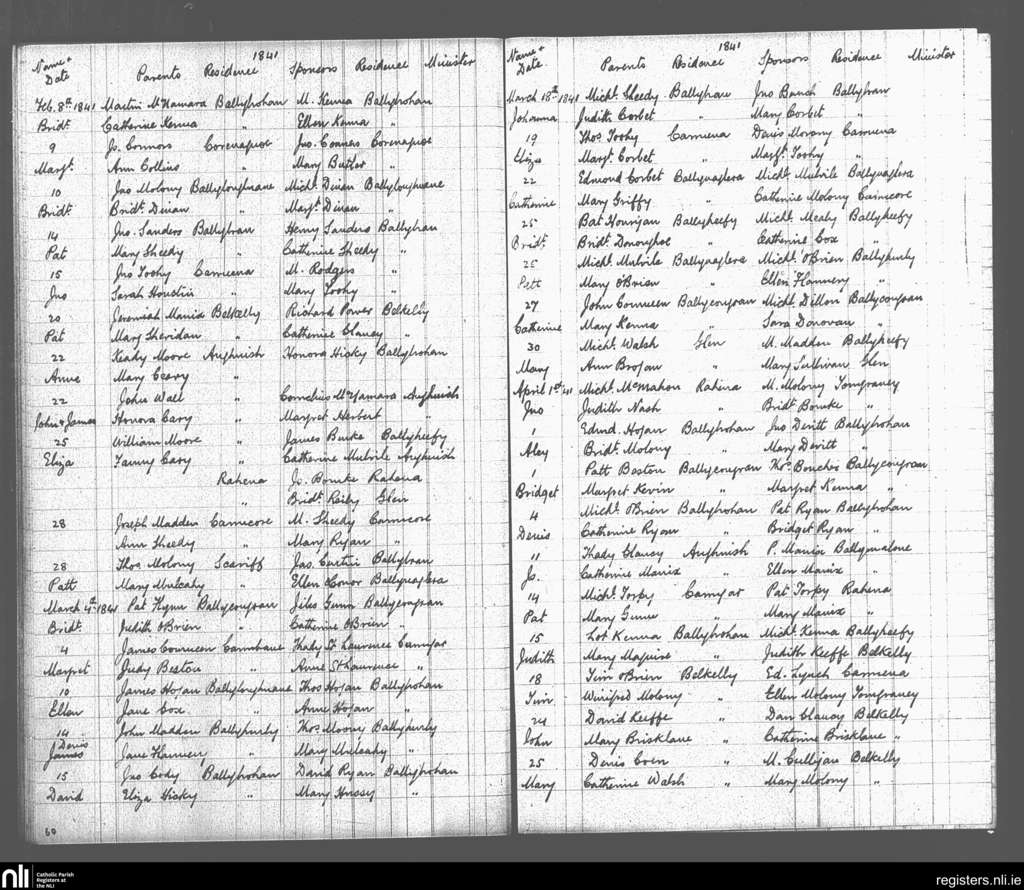 1841
Name + Date Parents Residence Sponsors Residence Minister
Feb. 8th 1841 Martin McNamara Ballybrohan M. Kenna Ballybrohan
Bridt. Catherine Kenna " Ellen Kenna "
9 Jo. Connors Jno. Connors
Margt. Ann Collins " Mary Butler "
10 Jno Molony Ballyloughnane Michl. Dinan Ballyloughnane
Bridt. Bridt. Dinan " Margt. Dinan "
14 Jno. Sanders Ballybran Henry Sanders Ballybran
Pat Mary Sheedy " Catherine Sheedy "
15 Jno Toohy Carneena M. Rodgers "
Jno Sarah " Mary Toohy "
20 Jeremiah Belkelly Richard Power Belkelly
Pat Mary Sheridan " Catherine Clancy "
22 Moore Aughinish Honora Hicky Ballybrohan
Anne Mary "
22 John Wall " Cornelius McNamara Aughinish
John + James Honora Cary " Margret Herbert "
25 William Moore " James Burke Ballyheefy
Eliza Cary " Catherine Mulvile Aughinish
Rahena Jo. Bourke Rahena
" Bridt. Reily Glen
28 Joseph Madden Carncore M. Sheedy Carncore
Ann Sheedy " Mary Ryan "
28 Thos. Molony Scariff Jas. Curtin Ballybran
Patt Mary Mulcahy " Ellen Conor Ballyvaglera
March 4th 1841 Pat Flynn Ballycougran Giles Gunn Ballycougran
Bridt. Judith OBrien " Catherine OBrien "
4 James Conneen Thady St Laurence Carrigar
Margret Judy Beston " Anne St Laurence "
10 James Hogan Ballyloughnane Thos Hogan Ballybrohan
Ellen Jane Cox " Anne Hogan "
14 John Madden Ballyhurly Thos. Moony Ballyhurly
Denis James Jane " Mary Mulcahy "
15 Jno Cody Ballybrohan David Ryan Ballybrohan
David Eliza Hicky " Mary Hussy "
60
1841
Name + Date Parents Residence Sponsors Residence Minister
March 18th 1841 Michl. Sheedy Ballybran Jno Ballybran
Johanna Judith Corbet " Mary Corbet "
19 Thos. Toohy Carneena Denis Morony Carneena
Eliza Margt. Corbet " Margt. Toohy "
22 Edmond Corbet Ballyvaglera Michl. Mulvile Ballyvaglera
Catherine Mary Griffy " Catherine Molony Carncore
25 Bat Hourigan Ballyheefy Michl. Mealy Ballyheefy
Bridt. Bridt. Donoughoe " Catherine Cox "
25 Michl. Mulvile Ballyvaglera Michl. O'Brien Ballyhurly
Patt Mary OBrien " Ellen Flannery "
27 John Conneen Ballycougran Michl. Dillon Ballycougran
Catherine Mary Kenna " Sara Donovan "
30 Michl. Walsh Glen M. Madden Ballyheefy
Mary Ann Brogan " Mary Sullivan Glen
April 1st 41 Michl. McMahon Rahena M. Molony Tomgraney
Jno Judith Nash " Bridt. Bourke "
1 Edmd. Hogan Ballybrohan Jno Devitt Ballybrohan
Aley Bridt. Molony " Mary Devitt "
1 Patt Beston Ballycougran Thos. Bouchir Ballycougran
Bridget Margret Kevin " Margret Kenna "
4 Michl. OBrien Ballybrohan Pat Ryan Ballybrohan
Denis Catherine Ryan " Bridget Ryan "
11 Thady Clancy Aughinish P. Manix Ballymalone
Jo. Catherine Manix " Ellen Manix "
14 Michl. Torpy Carrigar Pat Torpy Rahena
Pat Mary Gunn " Mary Manix "
15 Lot Kenna Ballybrohan Michl. Kenna Ballyheefy
Judith Mary Maguire " Judith Keeffe Belkelly
18 Tim OBrien Belkelly Ed. Lynch Carneena
Tim Winifred Molony " Ellen Molony Tomgraney
24 David Keeffe " Dan Clancy Belkelly
John Mary Brisklane " Catherine Brisklane "
25 Denis Coen " M. Culligan Belkelly
Mary Catherine Walsh " Mary Molony "
nli Catholic Parish Registers at the NLI
registers.nli.ie